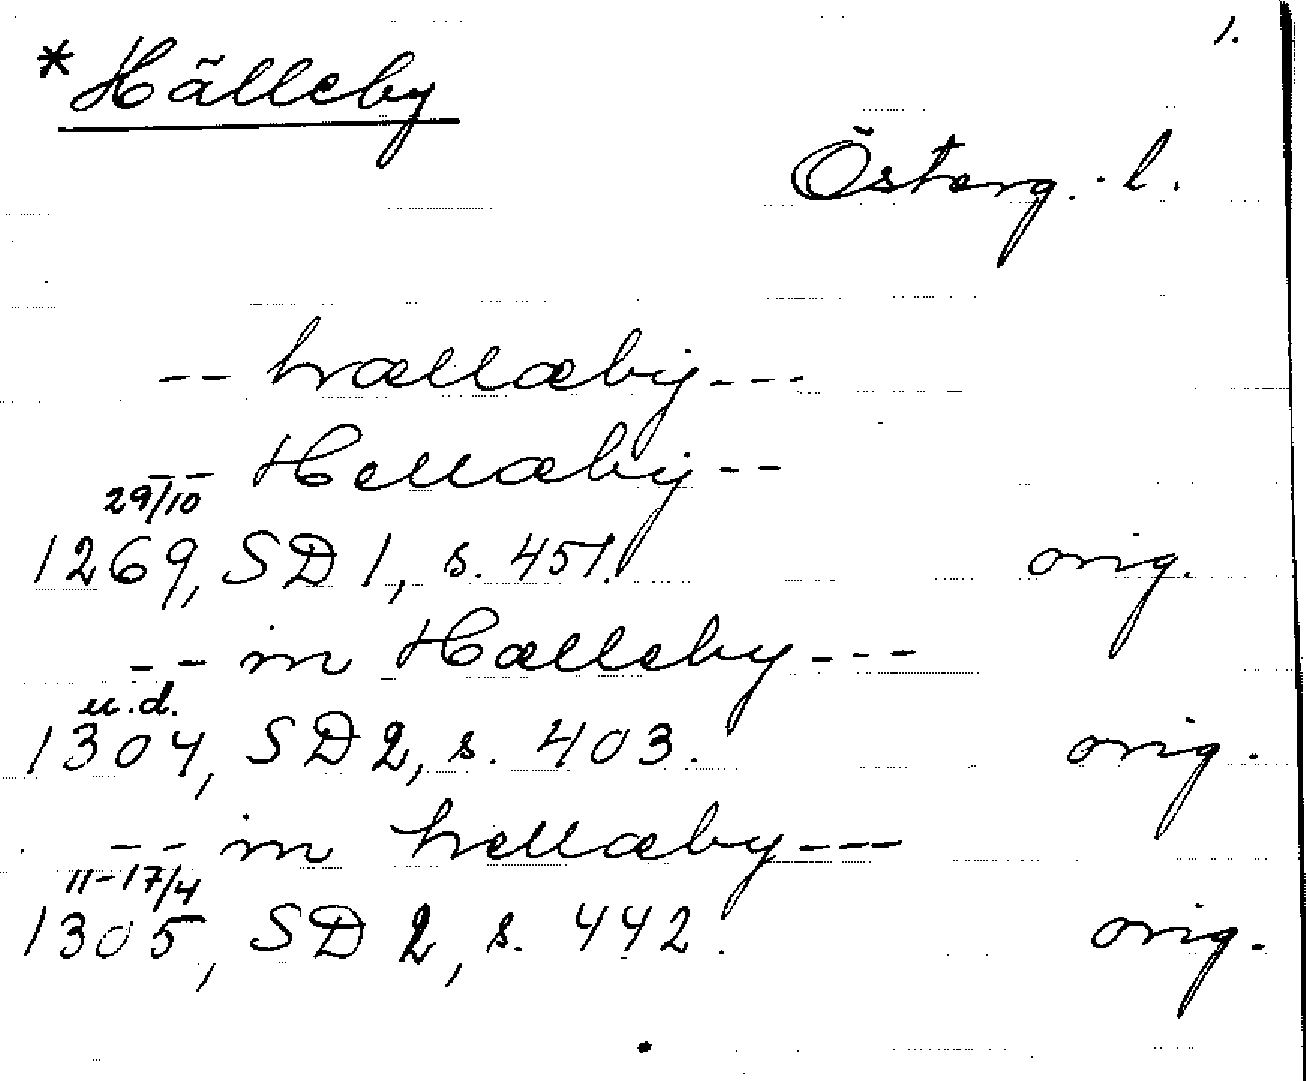 1.
*Hälleby
Österg. l.
-- hrællæby ---
-- Hellæby --
29/10
1269, SD 1, s. 451. orig.
-- in Hælleby ---
u.d.
1304, SD 2, s. 403. orig.
-- in hellæby ---
11-17/4
1305, SD 2, s. 442. orig.